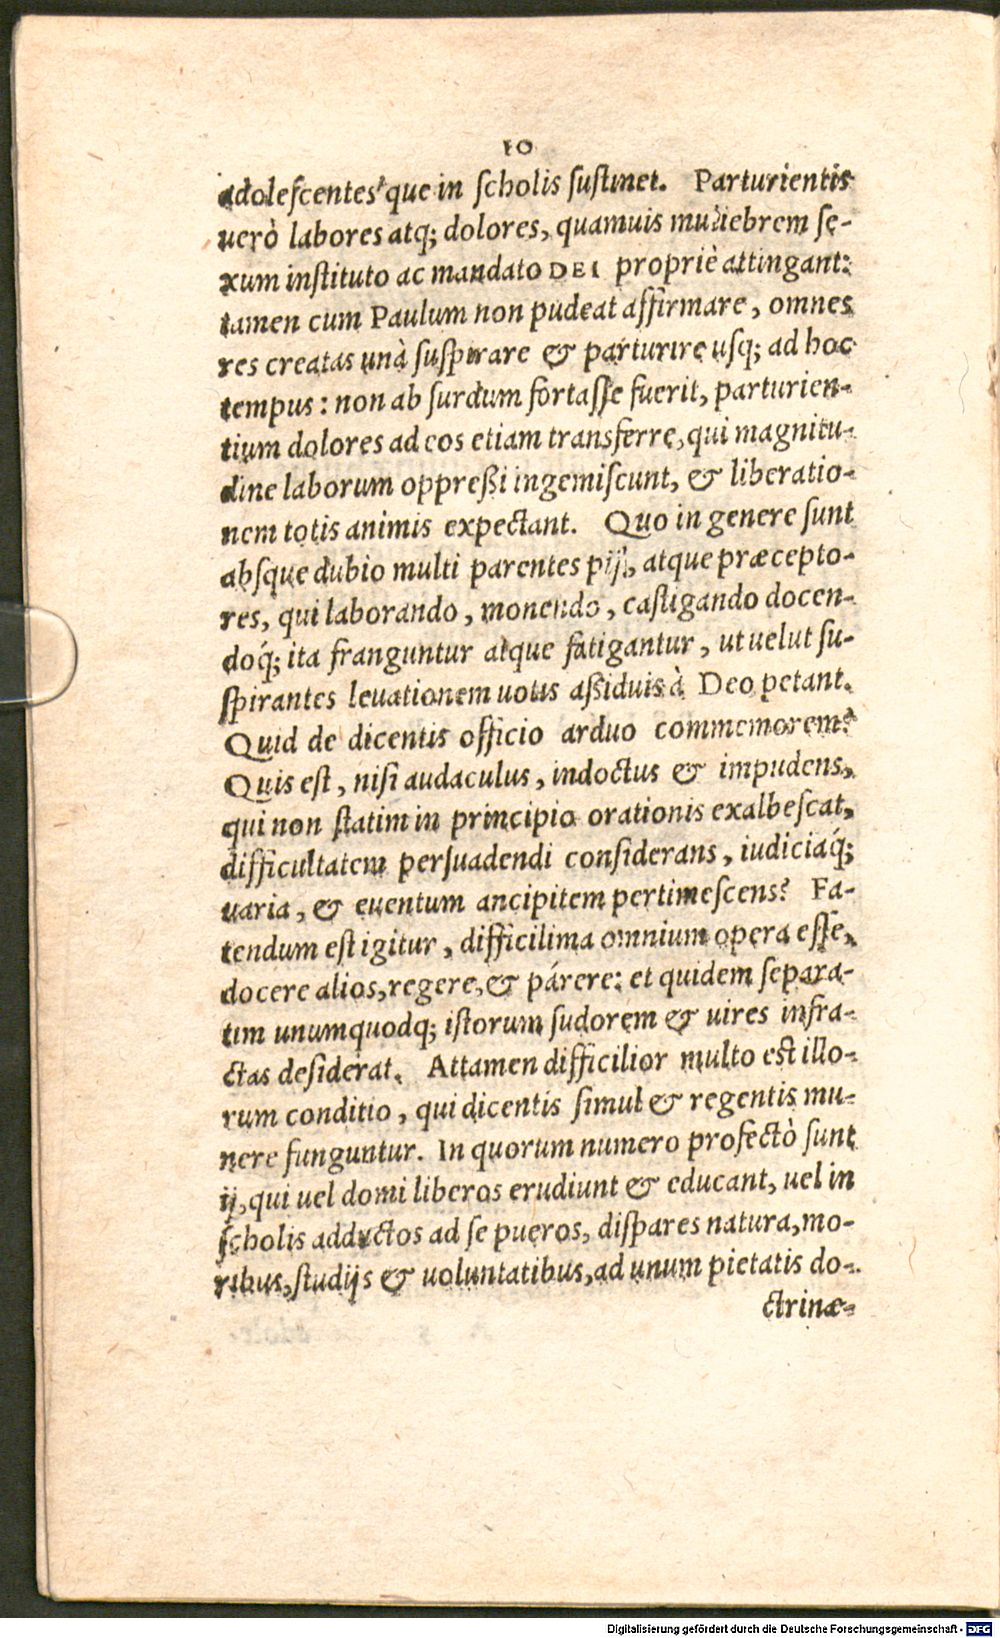 10
adoleſcentes que in ſcholis ſuſtinet. Parturientis
uerò labores atq; dolores, quamuis muliebrem ſe-
xum inſtituto ac mandato DEI propriè attingant:
tamen cum Paulum non pudeat affirmare, omnes
res creatas unà ſuſpirare & parturire uſq; ad hoc
tempus: non ab ſurdum fortaſſe fuerit, parturien-
tium dolores ad eos etiam transferre, qui magnitu-
dine laborum oppreßi ingemiſcunt, & liberatio-
nem totis animis expectant. Quo in genere ſunt
abſque dubio multi parentes pij, atque præcepto-
res, qui laborando, monendo, caſtigando docen-
doq́; ita franguntur atque fatigantur, ut uelut ſu-
ſpirantes leuationem uotis aßiduis à Deo petant.
Quid de dicentis officio arduo commemorem?
Quis eſt, niſi audaculus, indoctus & impudens,
qui non ſtatim in principio orationis exalbeſcat,
difficultatem perſuadendi conſiderans, iudiciaq́;
uaria, & euentum ancipitem pertimeſcens? Fa-
tendum eſt igitur, difficilima omnium opera eſſe,
docere alios, regere, & párere: et quidem ſepara-
tim unumquodq; iſtorum ſudorem & uires infra-
ctas deſiderat. Attamen difficilior multo eſt illo-
rum conditio, qui dicentis ſimul & regentis mu-
nere funguntur. In quorum numero profectò ſunt
ij, qui uel domi liberos erudiunt & educant, uel in
ſcholis adductos ad ſe pueros, diſpares natura, mo-
ribus, ſtudijs & uoluntatibus, ad unum pietatis do-
ctrinæ-
Digitalisierung gefördert durch die Deutsche Forschungsgemeinschaft - DFG